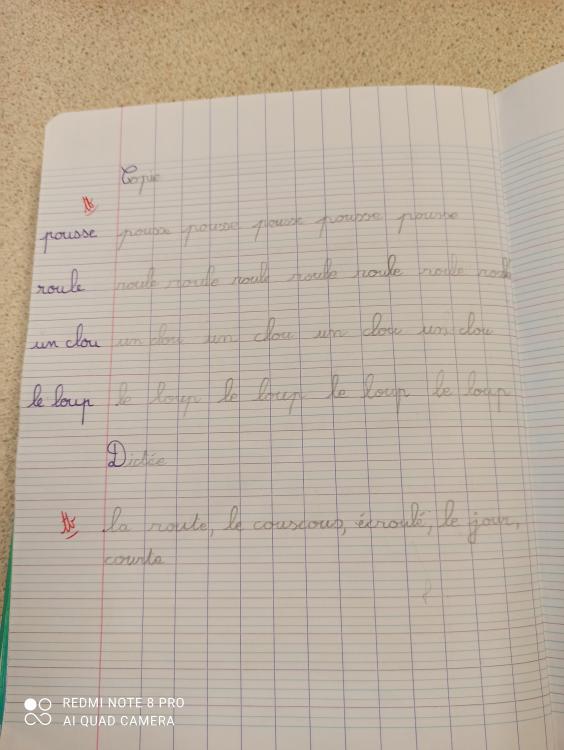 Copie
tb
pousse pousse pousse pousse pousse pousse
roule roule roule roule roule roule roule roule
un clou un clou un clou un clou un clou
le loup le loup le loup le loup le loup
Dictée
tb la route, le couscous, écroulé, le jour,
courte
REDMI NOTE 8 PRO
AI QUAD CAMERA